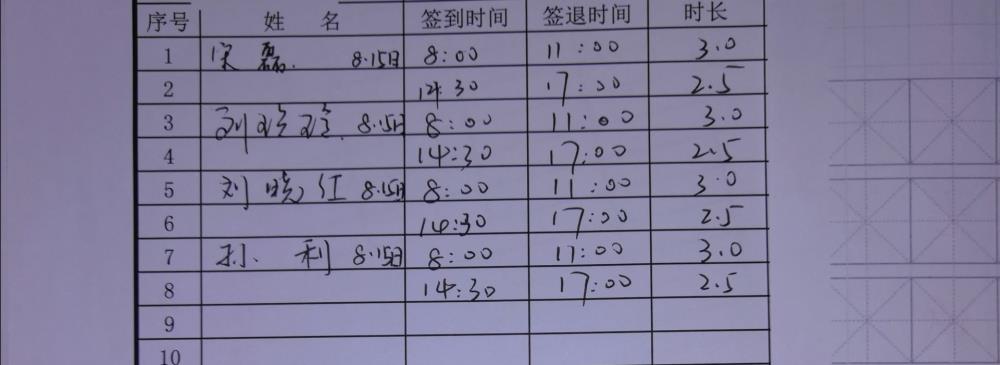 序号 姓 名 签到时间 签退时间 时长
1 宋磊. 8.15日 8:00 11:00 3.0
2 14:30 17:00 2.5
3 刘玲玲. 8.15日 8:00 11:00 3.0
4 14:30 17:00 2.5
5 刘晓红 8.15日 8:00 11:00 3.0
6 14:30 17:00 2.5
7 利 8.15日 8:00 11:00 3.0
8 14:30 17:00 2.5
9
10